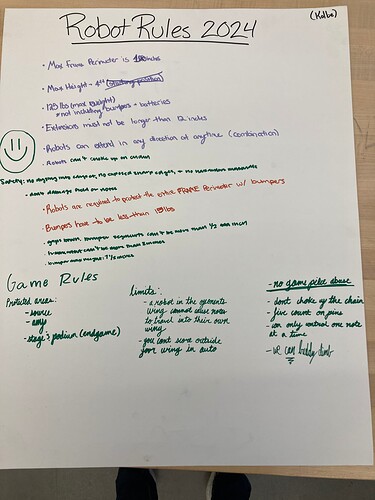 Robot Rules 2024
(Kolbe)
• Max Frame Perimeter is inches
• Max Height - 4ft (starting position)
• 125 lbs (max weight)
* not including bumpers + batteries
• Extensions must not be longer than 12 inches
• Robots can extend in any direction at anytime (combination)
• Robot can't choke up on chain
Safety: no anything into carpet, no exposed sharp edges, + no hazardous materials
- don't damage field or notes
• Robots are required to protect the entire FRAME Perimeter w/ bumpers
• Bumpers have to be less than 15lbs
• gaps between bumper segments can't be more than 1/2 an inch
can't be more than
• bumper zone height: 7 1/2 inches
Game Rules
Protected areas:
- source
- amp
- stage + podium (endgame)
limits:
- a robot in the opponents
wing cannot cause notes
to travel into their own
wing
- you can't score outside
your wing in auto
- no game piece abuse
- dont choke up the chain
- five count on pins
- can only control one note
at a time
- we can buddy climb